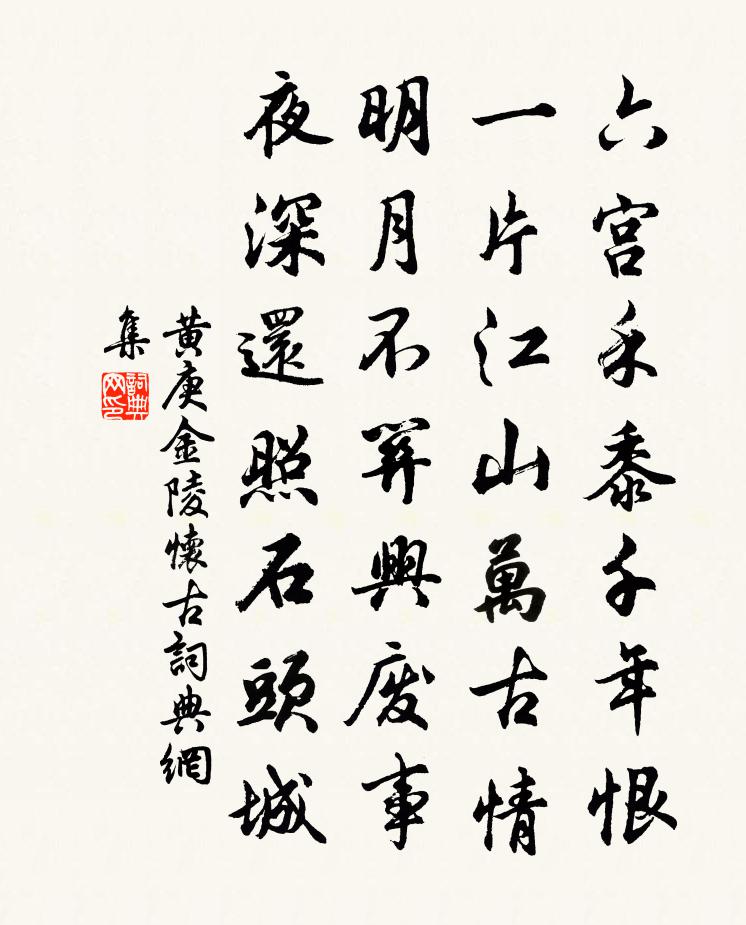 六宮禾黍千年恨
一片江山萬古情
明月不筭興廢事
夜深還照石頭城
黄庚金陵懷古詞典網
集
詞典
网印